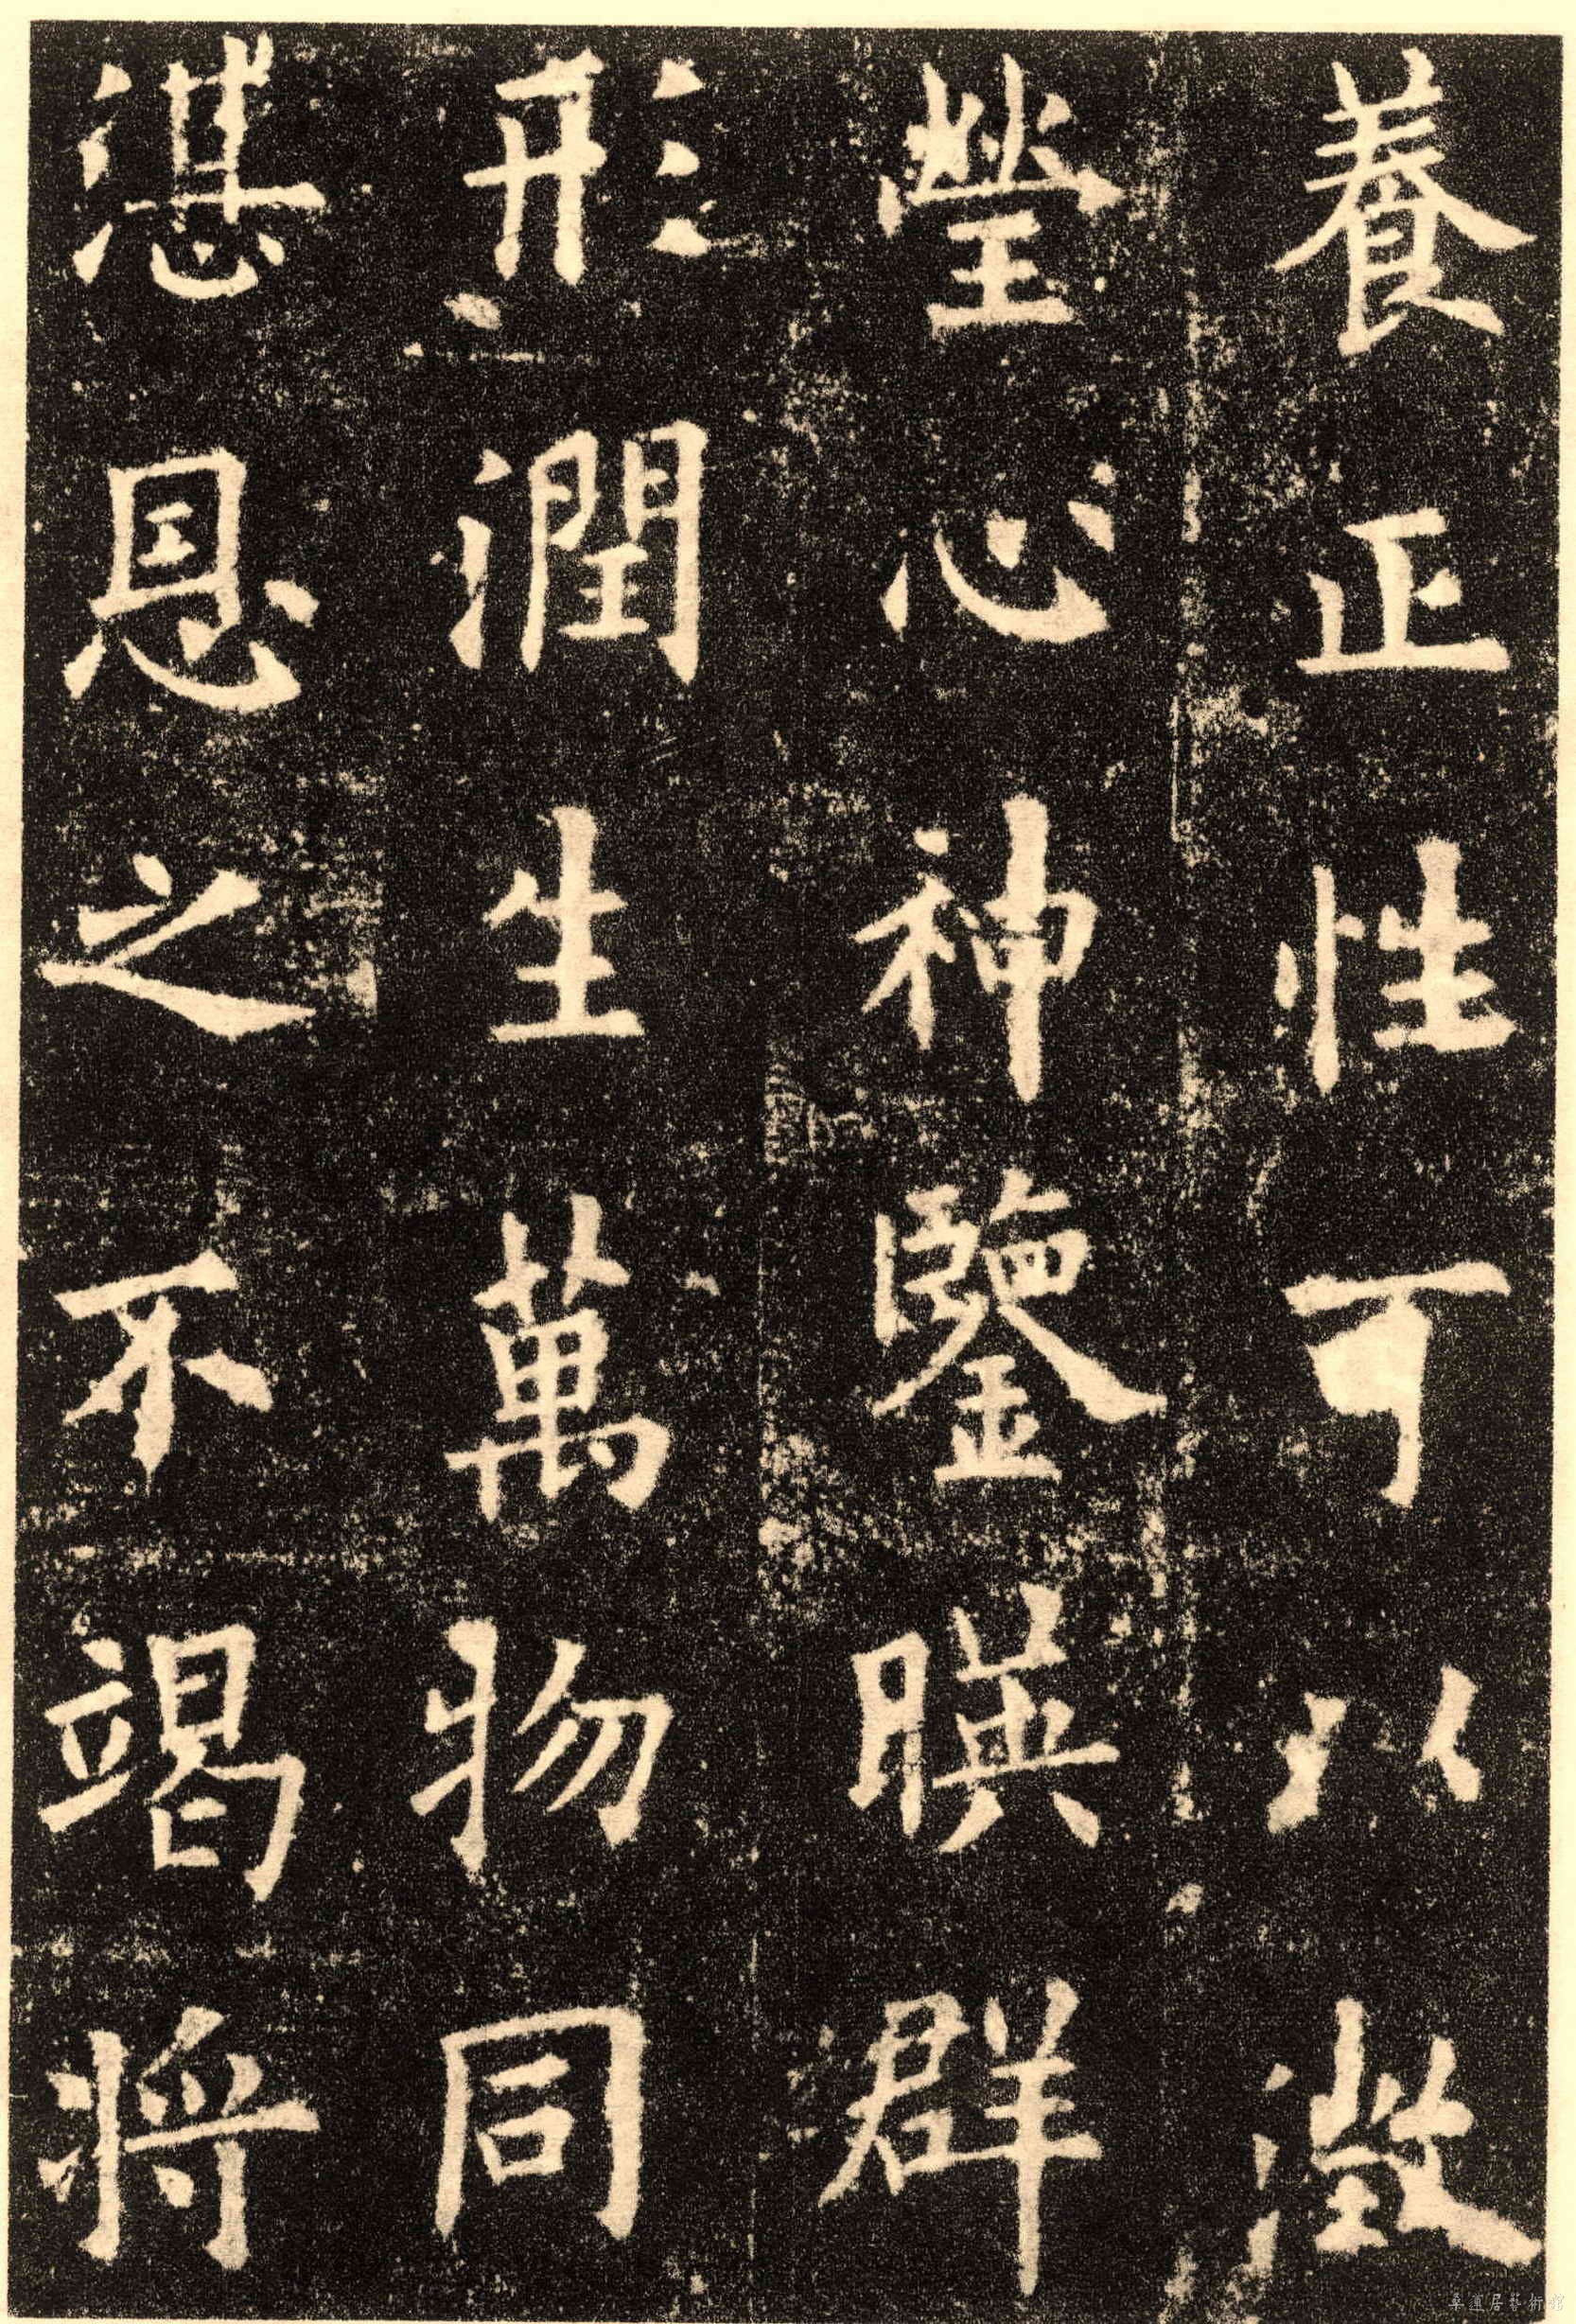 養正性可以澂
瑩心神鑒暎群
形潤生萬物同
湛恩之不竭將
卓蓮居藝術館